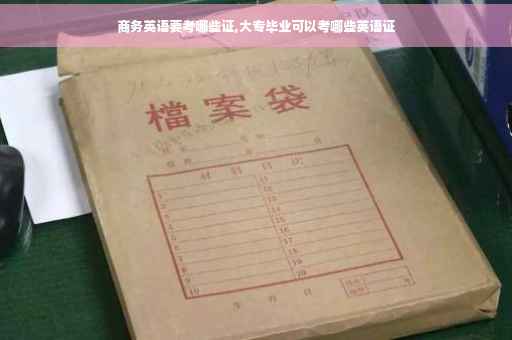 商务英语要考哪些证,大专毕业可以考哪些英语证
檔案袋
材料目次
1 11
2 12
3 13
4 14
5 15
6 16
7 17
8 18
9 19
10 20
年 月 日